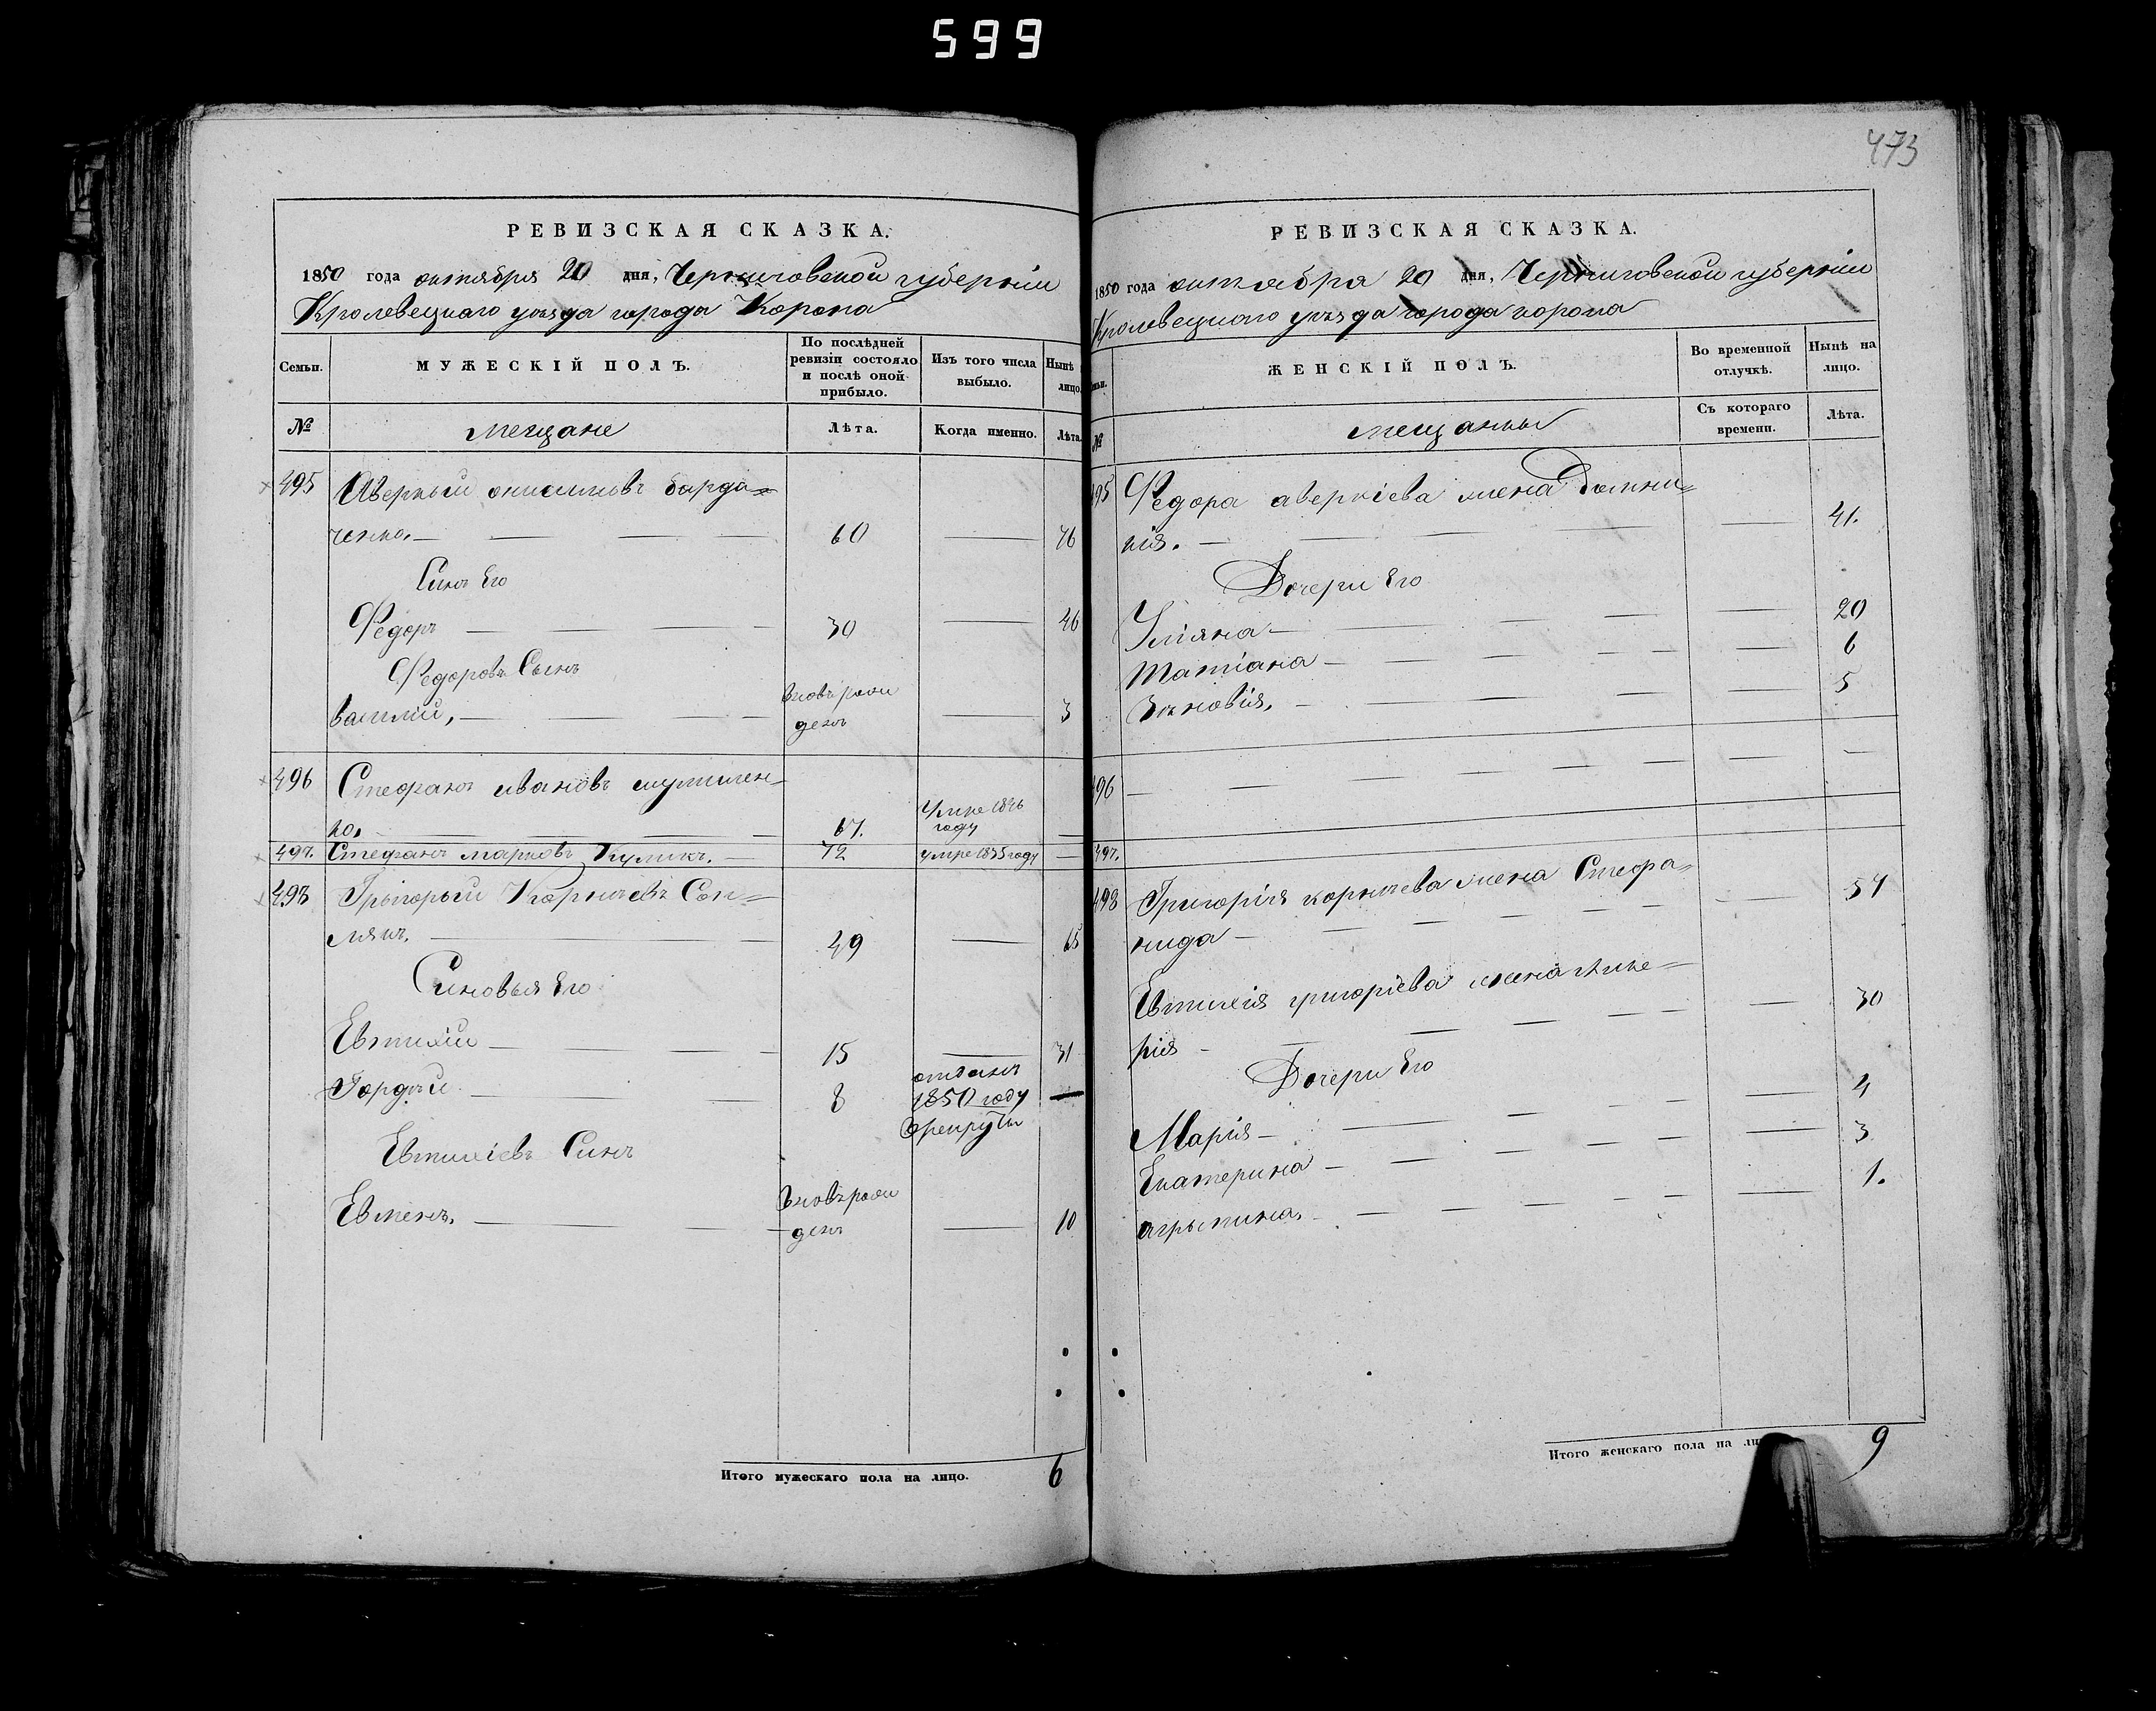 599
РЕВИЗСКАЯ СКАЗКА.
1850 года октября 20 дня, Черниговской губерніи
Кролевецкаго уѣзда города Коропа
Семьи.
МУЖЕСКІЙ ПОЛЪ.
По послѣдней
ревизіи состояло
и послѣ оной
прибыло.
Изъ того числа
выбыло.
Нынѣ
лицо.
№
мещане
Лѣта.
Когда именно.
Лѣта.
495 Аверкий онисимовъ барда=
ченко. 60 76
Синъ Его
Федоръ 30 46
Федоровъ Сынъ
василий, вновь рожденъ 3
496 Стефанъ ивановъ
ко. 67. Умре 1836 году
497. Стефанъ марковъ Куликъ. 72 умре 1835 году
498 Грыгорый Корнѣевъ Соп=
лякъ. 49 65
Синовья Его
Евтихій 15 31
Гордѣй 8 отданъ 1850 году Врекруты
Евтихіевъ Синъ
Евменъ. вновь рожденъ 10
Итого мужескаго пола на лицо. 6
473
РЕВИЗСКАЯ СКАЗКА.
1850 года октября 20 дня, Черниговской губерніи
Кролевецкаго уѣзда города коропа
ЖЕНСКІЙ ПОЛЪ.
Во временной
отлучкѣ.
Нынѣ на
лицо.
№
мещанки
Съ котораго
времени.
Лѣта.
495 Федора аверкіева жена Домни=
кія. 41.
Дочери Его
Уліяна 20
Татіана 6
Зѣновія. 5
496
497.
498 Григорія корнѣева жена Стефа=
нида 54
Евтихія григоріева жена Глике=
рія 30
Дочери Его
Марія 4
Екатерина 3
агрыпина. 1.
Итого женскаго пола на ли 9